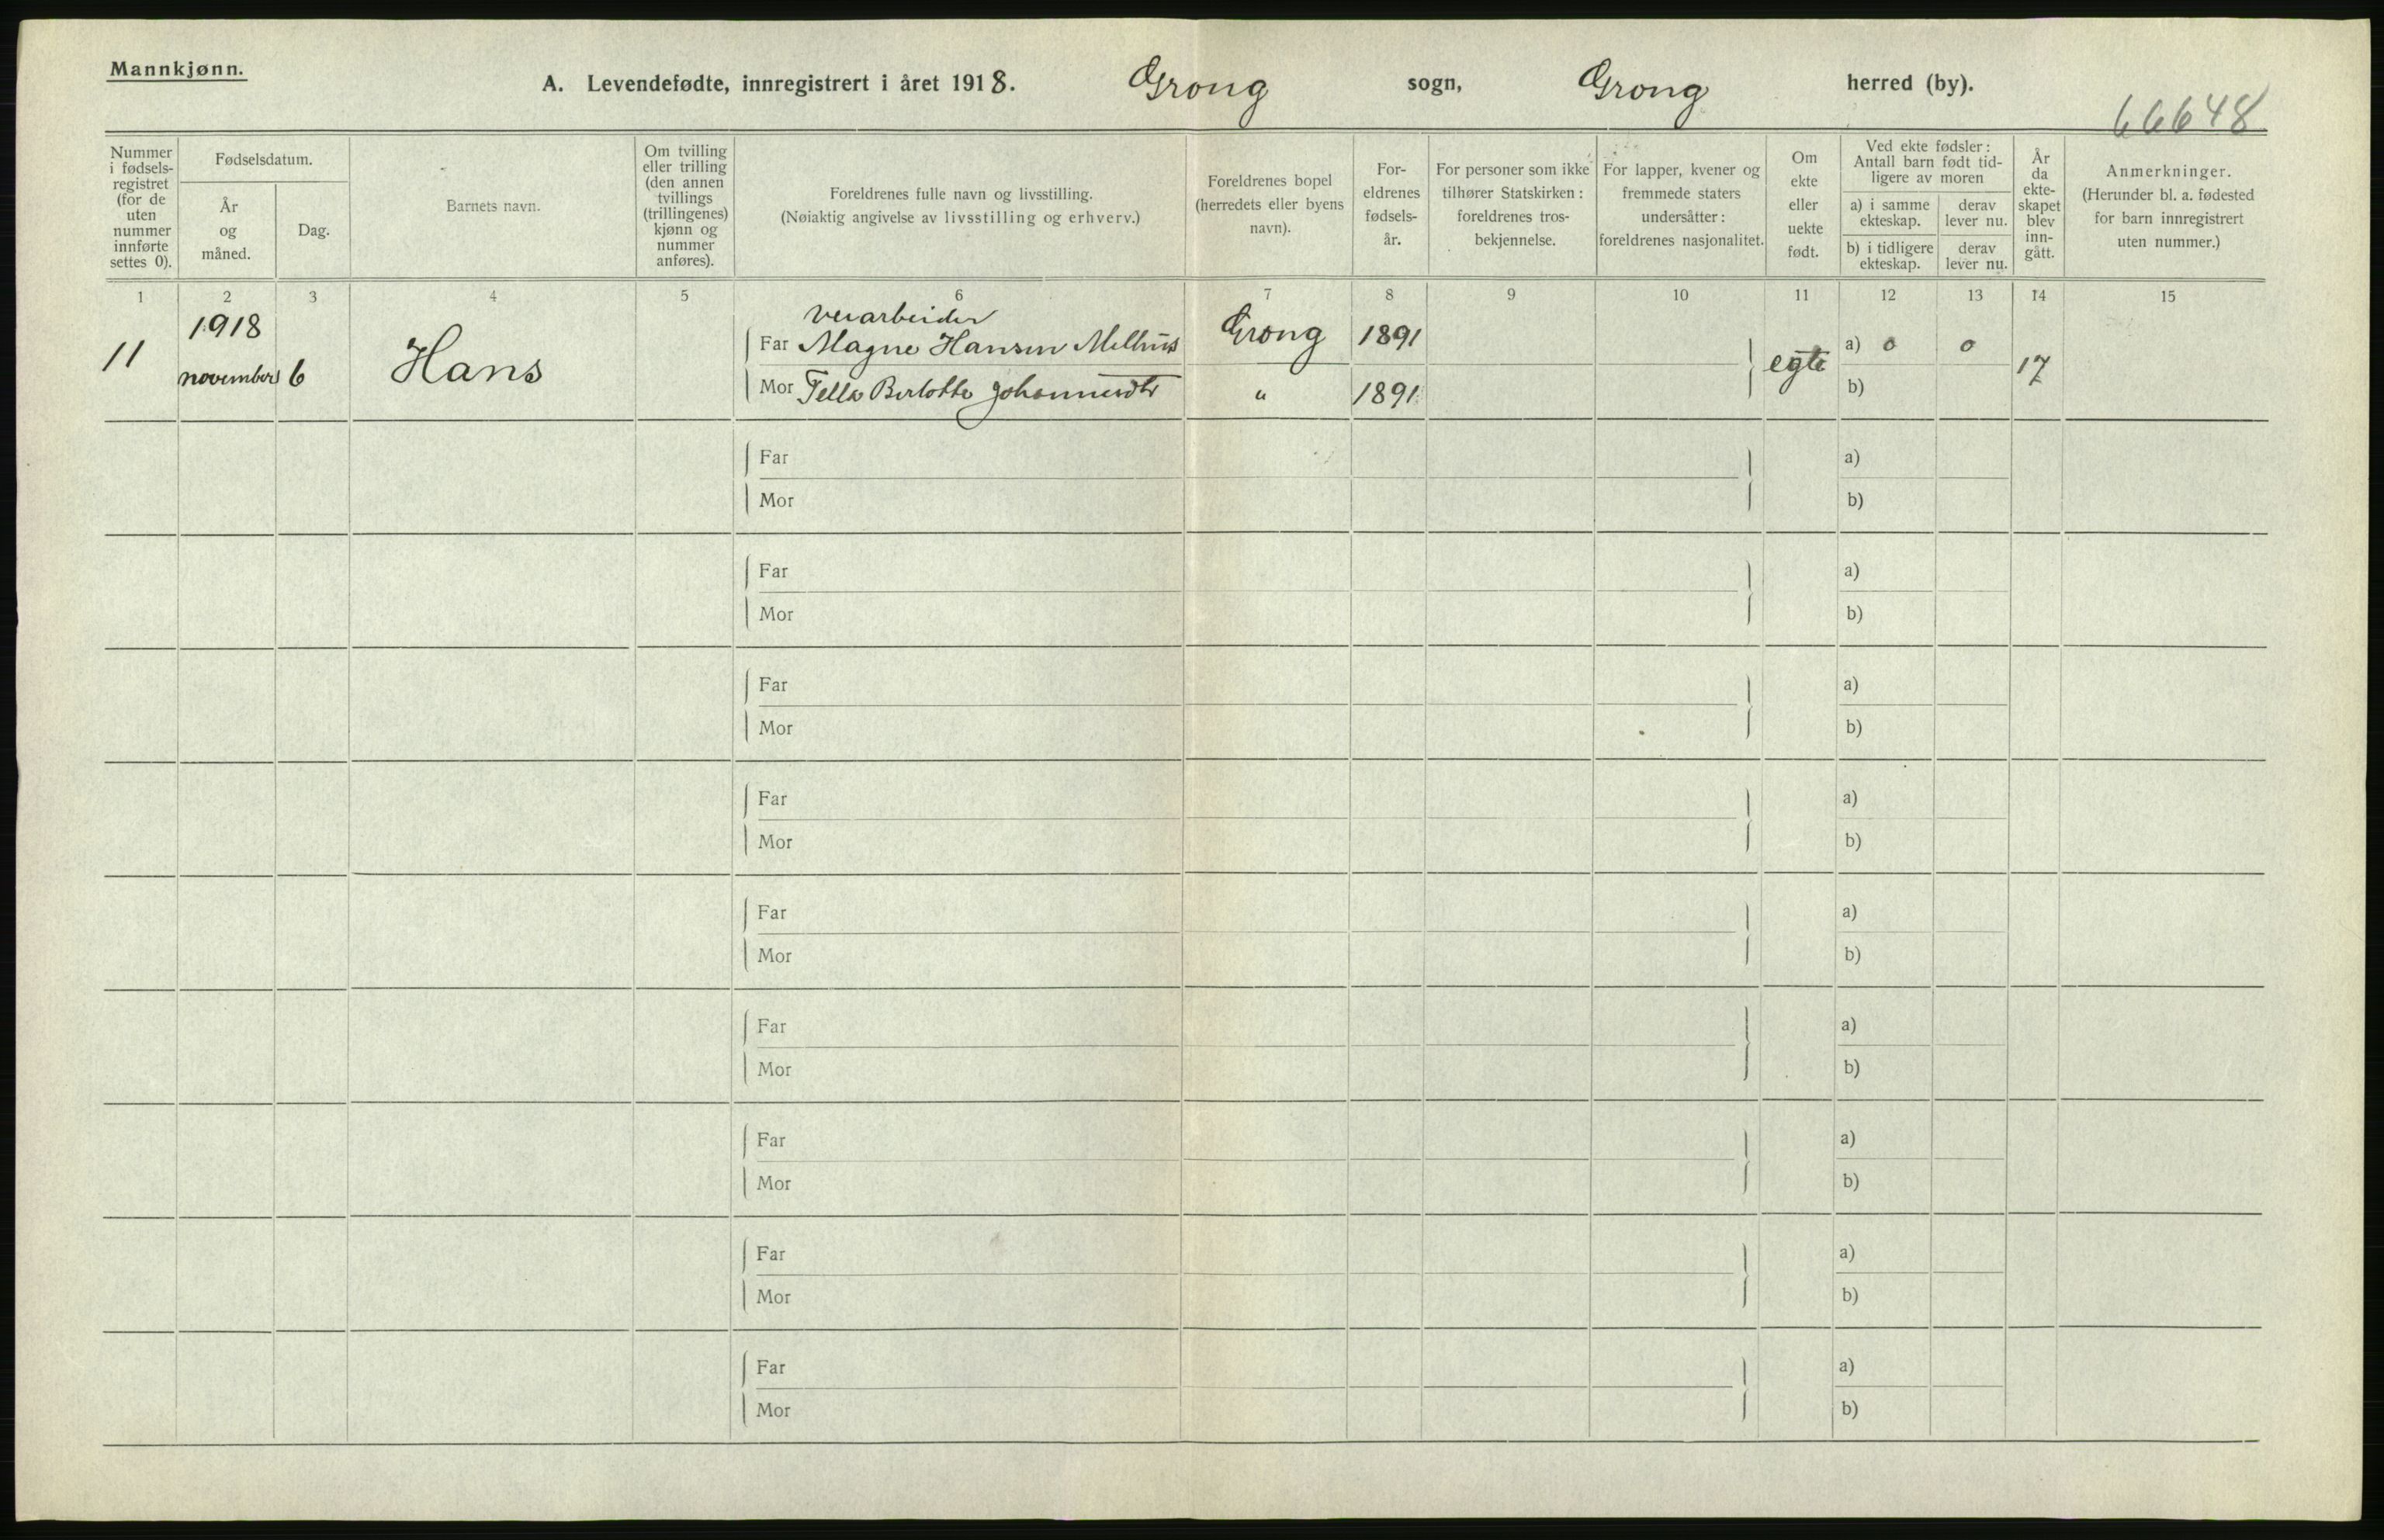 Mannkjønn.
A. Levendefødte, innregistrert i året 1918. Grong sogn, Grong herred (by).
66648
Nummer i fødsels-registret (for de uten nummer innførte settes 0).
Fødselsdatum.
År og måned.
Dag.
Barnets navn.
Om tvilling eller trilling (den annen tvillings (trillingenes) kjønn og nummer anføres).
Foreldrenes fulle navn og livsstilling.
(Nøiaktig angivelse av livsstilling og erhverv.)
Foreldrenes bopel (herredets eller byens navn).
For-eldrenes fødsels-år.
For personer som ikke tilhører Statskirken: foreldrenes tros-bekjennelse.
For lapper, kvener og fremmede staters undersåtter: foreldrenes nasjonalitet.
Om ekte eller uekte født.
Ved ekte fødsler: Antall barn født tid-ligere av moren
a) i samme ekteskap.
derav lever nu.
b) i tidligere ekteskap.
derav lever nu.
År da ekte-skapet blev inn-gått.
Anmerkninger.
(Herunder bl. a. fødested for barn innregistrert uten nummer.)
1 2 3 4 5 6 7 8 9 10 11 12 13 14 15
11 1918 november 6 Hans
veiarbeider
Far Magne Hansen Melhus Grong 1891 egte a) 0 0 17
Mor Johannesdtr " 1891 b)
Far a)
Mor b)
Far a)
Mor b)
Far a)
Mor b)
Far a)
Mor b)
Far a)
Mor b)
Far a)
Mor b)
Far a)
Mor b)
Far a)
Mor b)
Far a)
Mor b)